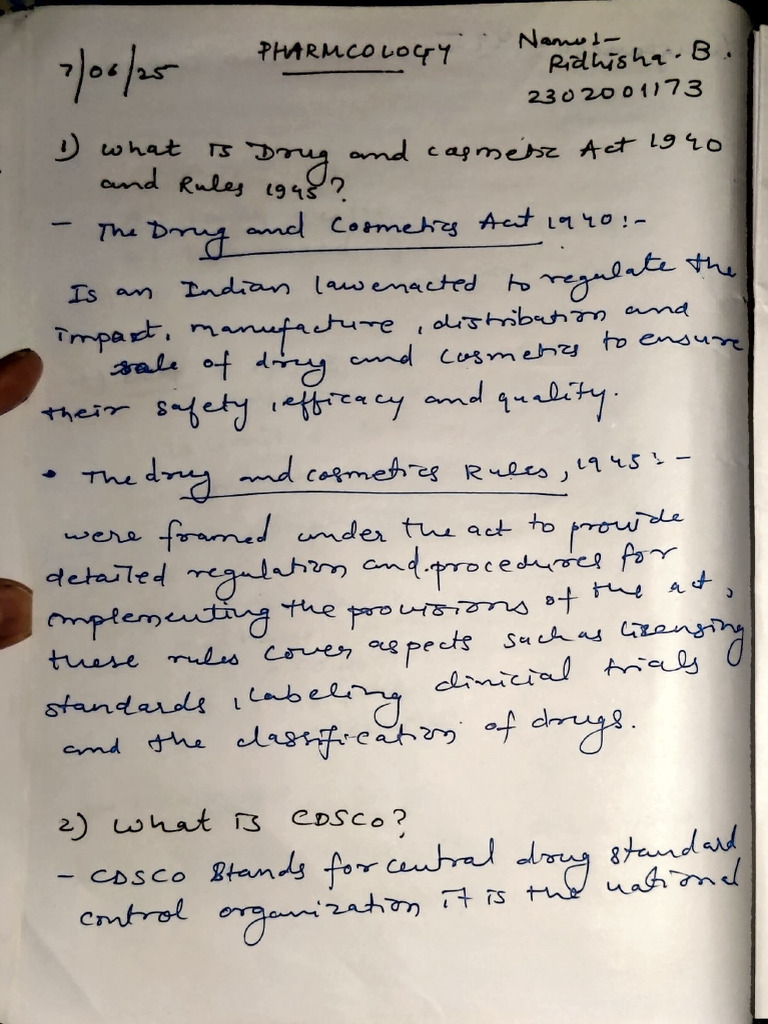 7/06/25
PHARMCOLOGY
Name:-
Ridhisha. B.
2302001173
1) What is Drug and casmetic Act 1940
and Rules 1945?
- The Drug and Cosmetics Act 1940:-
Is an Indian law enacted to regulate the
impact, manufacture, distribution and
sale of drug and cosmetics to ensure
their safety, efficacy and quality.
• The drug and cosmetics Rules, 1945:-
were framed under the act to provide
detailed regulation and procedures for
implementing the provisions of the act,
these rules cover aspects such as licensing
standards, labeling clinicial trials
and the classification of drugs.
2) What is CDSCO?
- CDSCO Stands for central drug standard
control organization it is the national